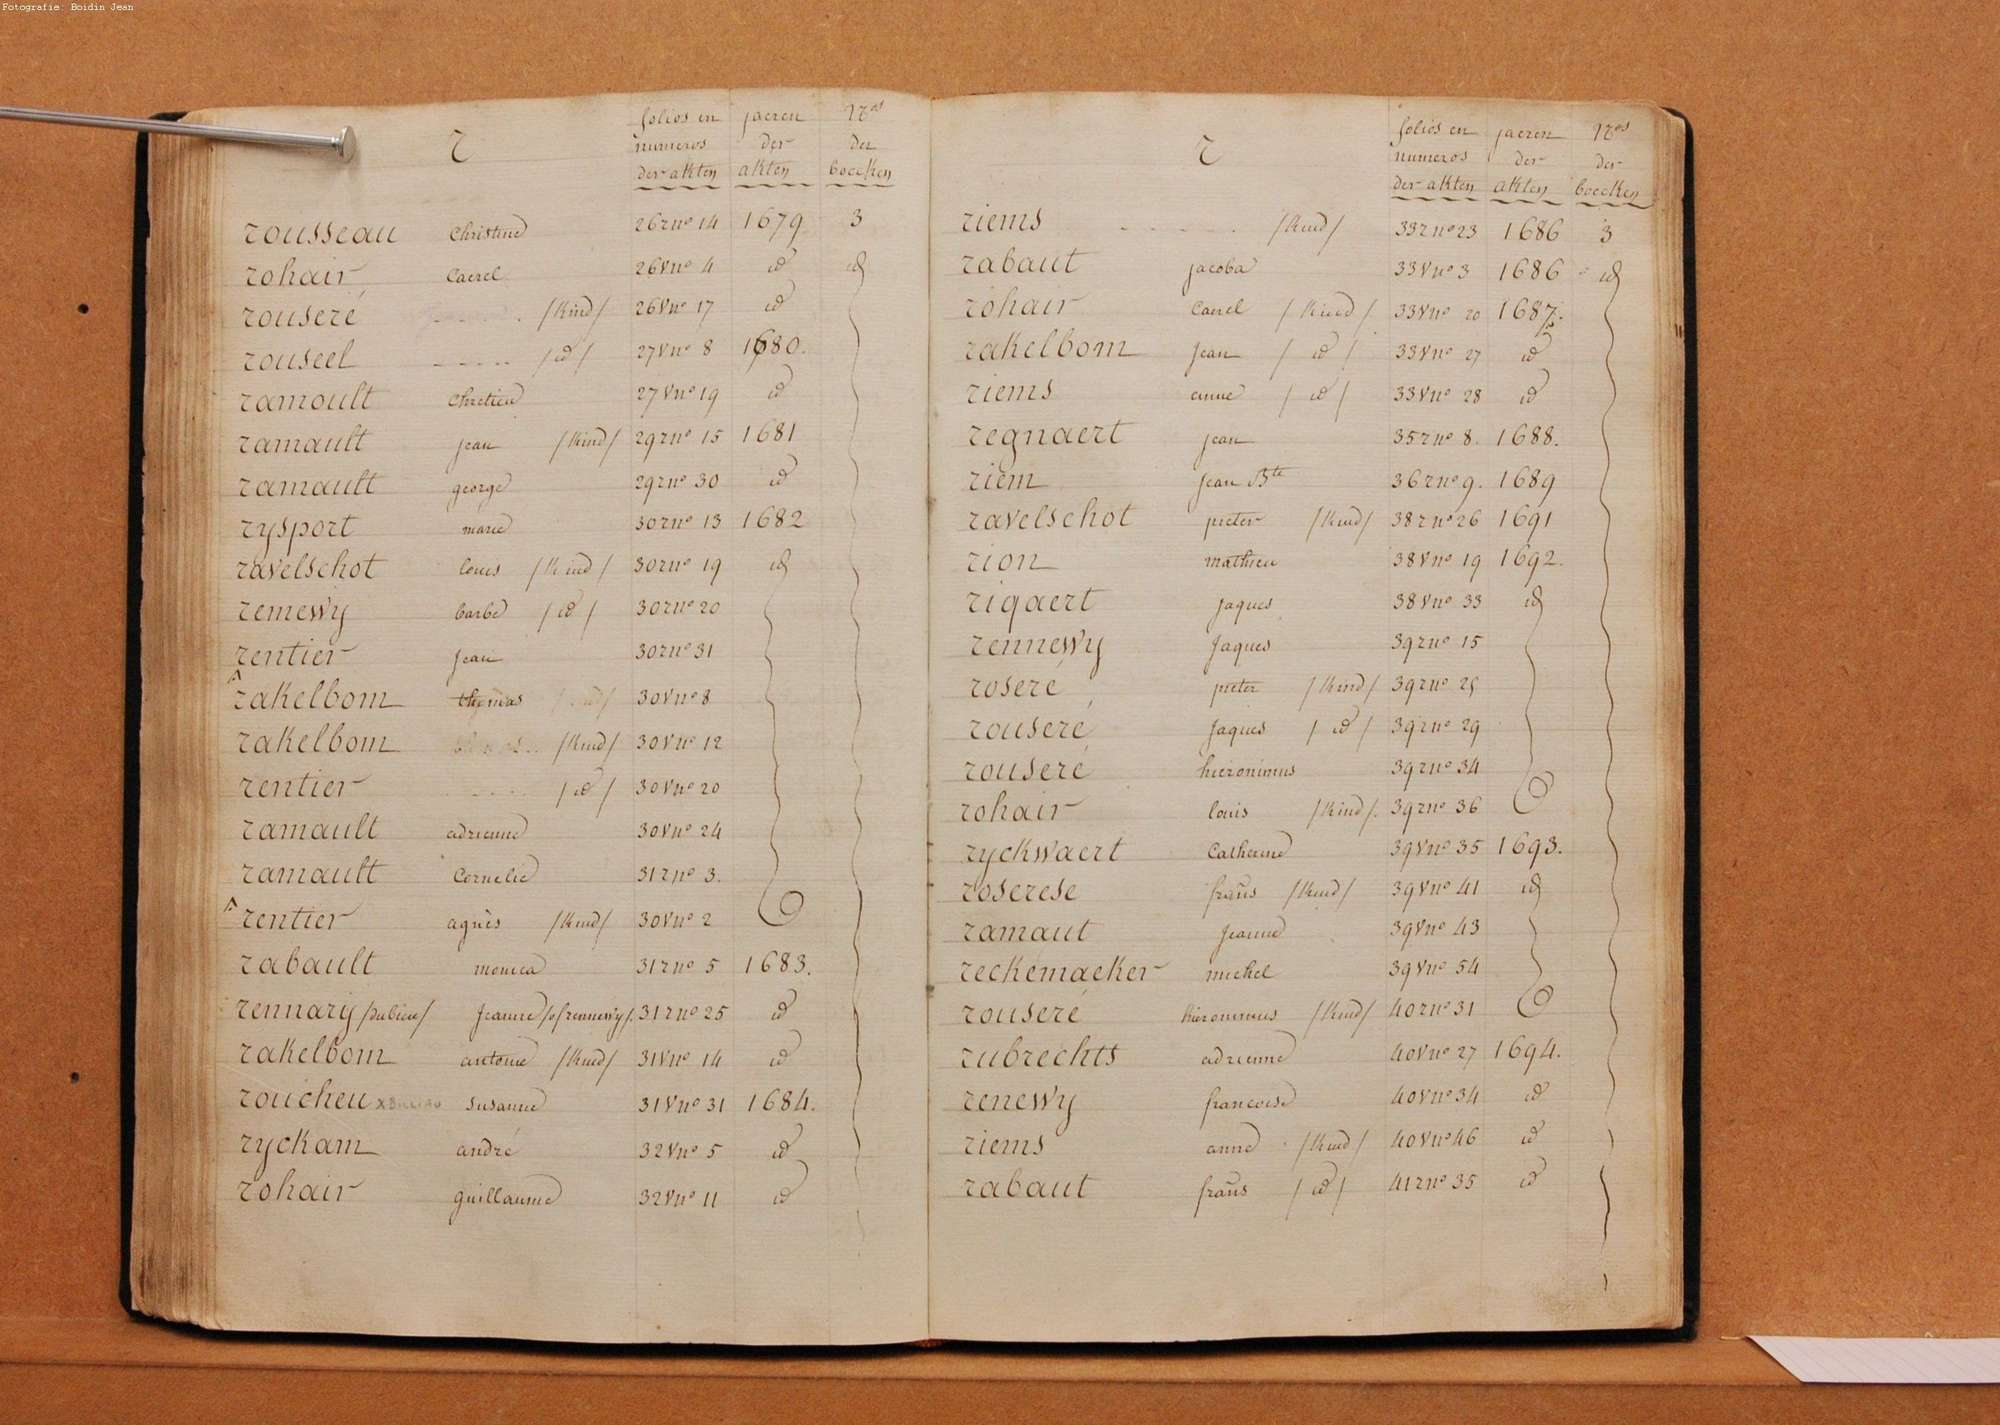 Fotografie: Boidin Jean
r
folios en numeros der akten jaeren der akten Nros der boecken
rousseau Christine 26r no 14 1679 3
rohair Caerel 26v no 4 id id
rouseré ...... /kind/ 26v no 17 id
rouseel ..... /id/ 27v no 8 1680.
ramoult Chretien 27v no 19 id
ramault jean /kind/ 29r no 15 1681
ramault george 29r no 30 id
rysport marie 30r no 13 1682
ravelschot louis /kind/ 30r no 19 id
remewy barbe /id/ 30r no 20
rentier jean 30r no 31
rakelbom thomas 30v no 8
rakelbom /kind/ 30v no 12
rentier ..... /id/ 30v no 20
ramault adrienne 30v no 24
ramault Cornelie 31r no 3.
rentier agnès /kind/ 30v no 2
rabault monica 31r no 5 1683.
rennary /dubieu/ jeanne /of rennewy/. 31r no 25 id
rakelbom antoine /kind/ 31v no 14 id
roucheu susanne 31v no 31 1684.
ryckam andré 32v no 5 id
rohair guillaume 32v no 11 id
r
folios en numeros der akten jaeren der akten Nros der boecken
riems ...... /kind/ 33r no 23 1686 3
rabaut jacoba 33v no 3 1686 id
rohair Carel /kind/ 33v no 20 1687.
rakelbom jean /id/ 33v no 27 id
riems anne /id/ 33v no 28 id
regnaert jean 35r no 8. 1688.
riem jean Bte 36r no 9. 1689
ravelschot pieter /kind/ 38r no 26 1691
rion mathieu 38v no 19 1692.
riqaert jaques 38v no 33 id
rennewy jaques 39r no 15
roseré pieter /kind/ 39r no 25
rouseré jaques /id/ 39r no 29
rouseré hieronimus 39r no 34
rohair louis /kind/. 39r no 36
ryckwaert Catherine 39v no 35 1693.
roserese frans /kind/ 39v no 41 id
ramaut jeanne 39v no 43
reckemaeker michel 39v no 54
rouseré hieronimus /kind/ 40r no 31
rubrechts adrienne 40v no 27 1694.
renewy francoise 40v no 34 id
riems anne /kind/ 40v no 46 id
rabaut frans /id/ 41r no 35 id